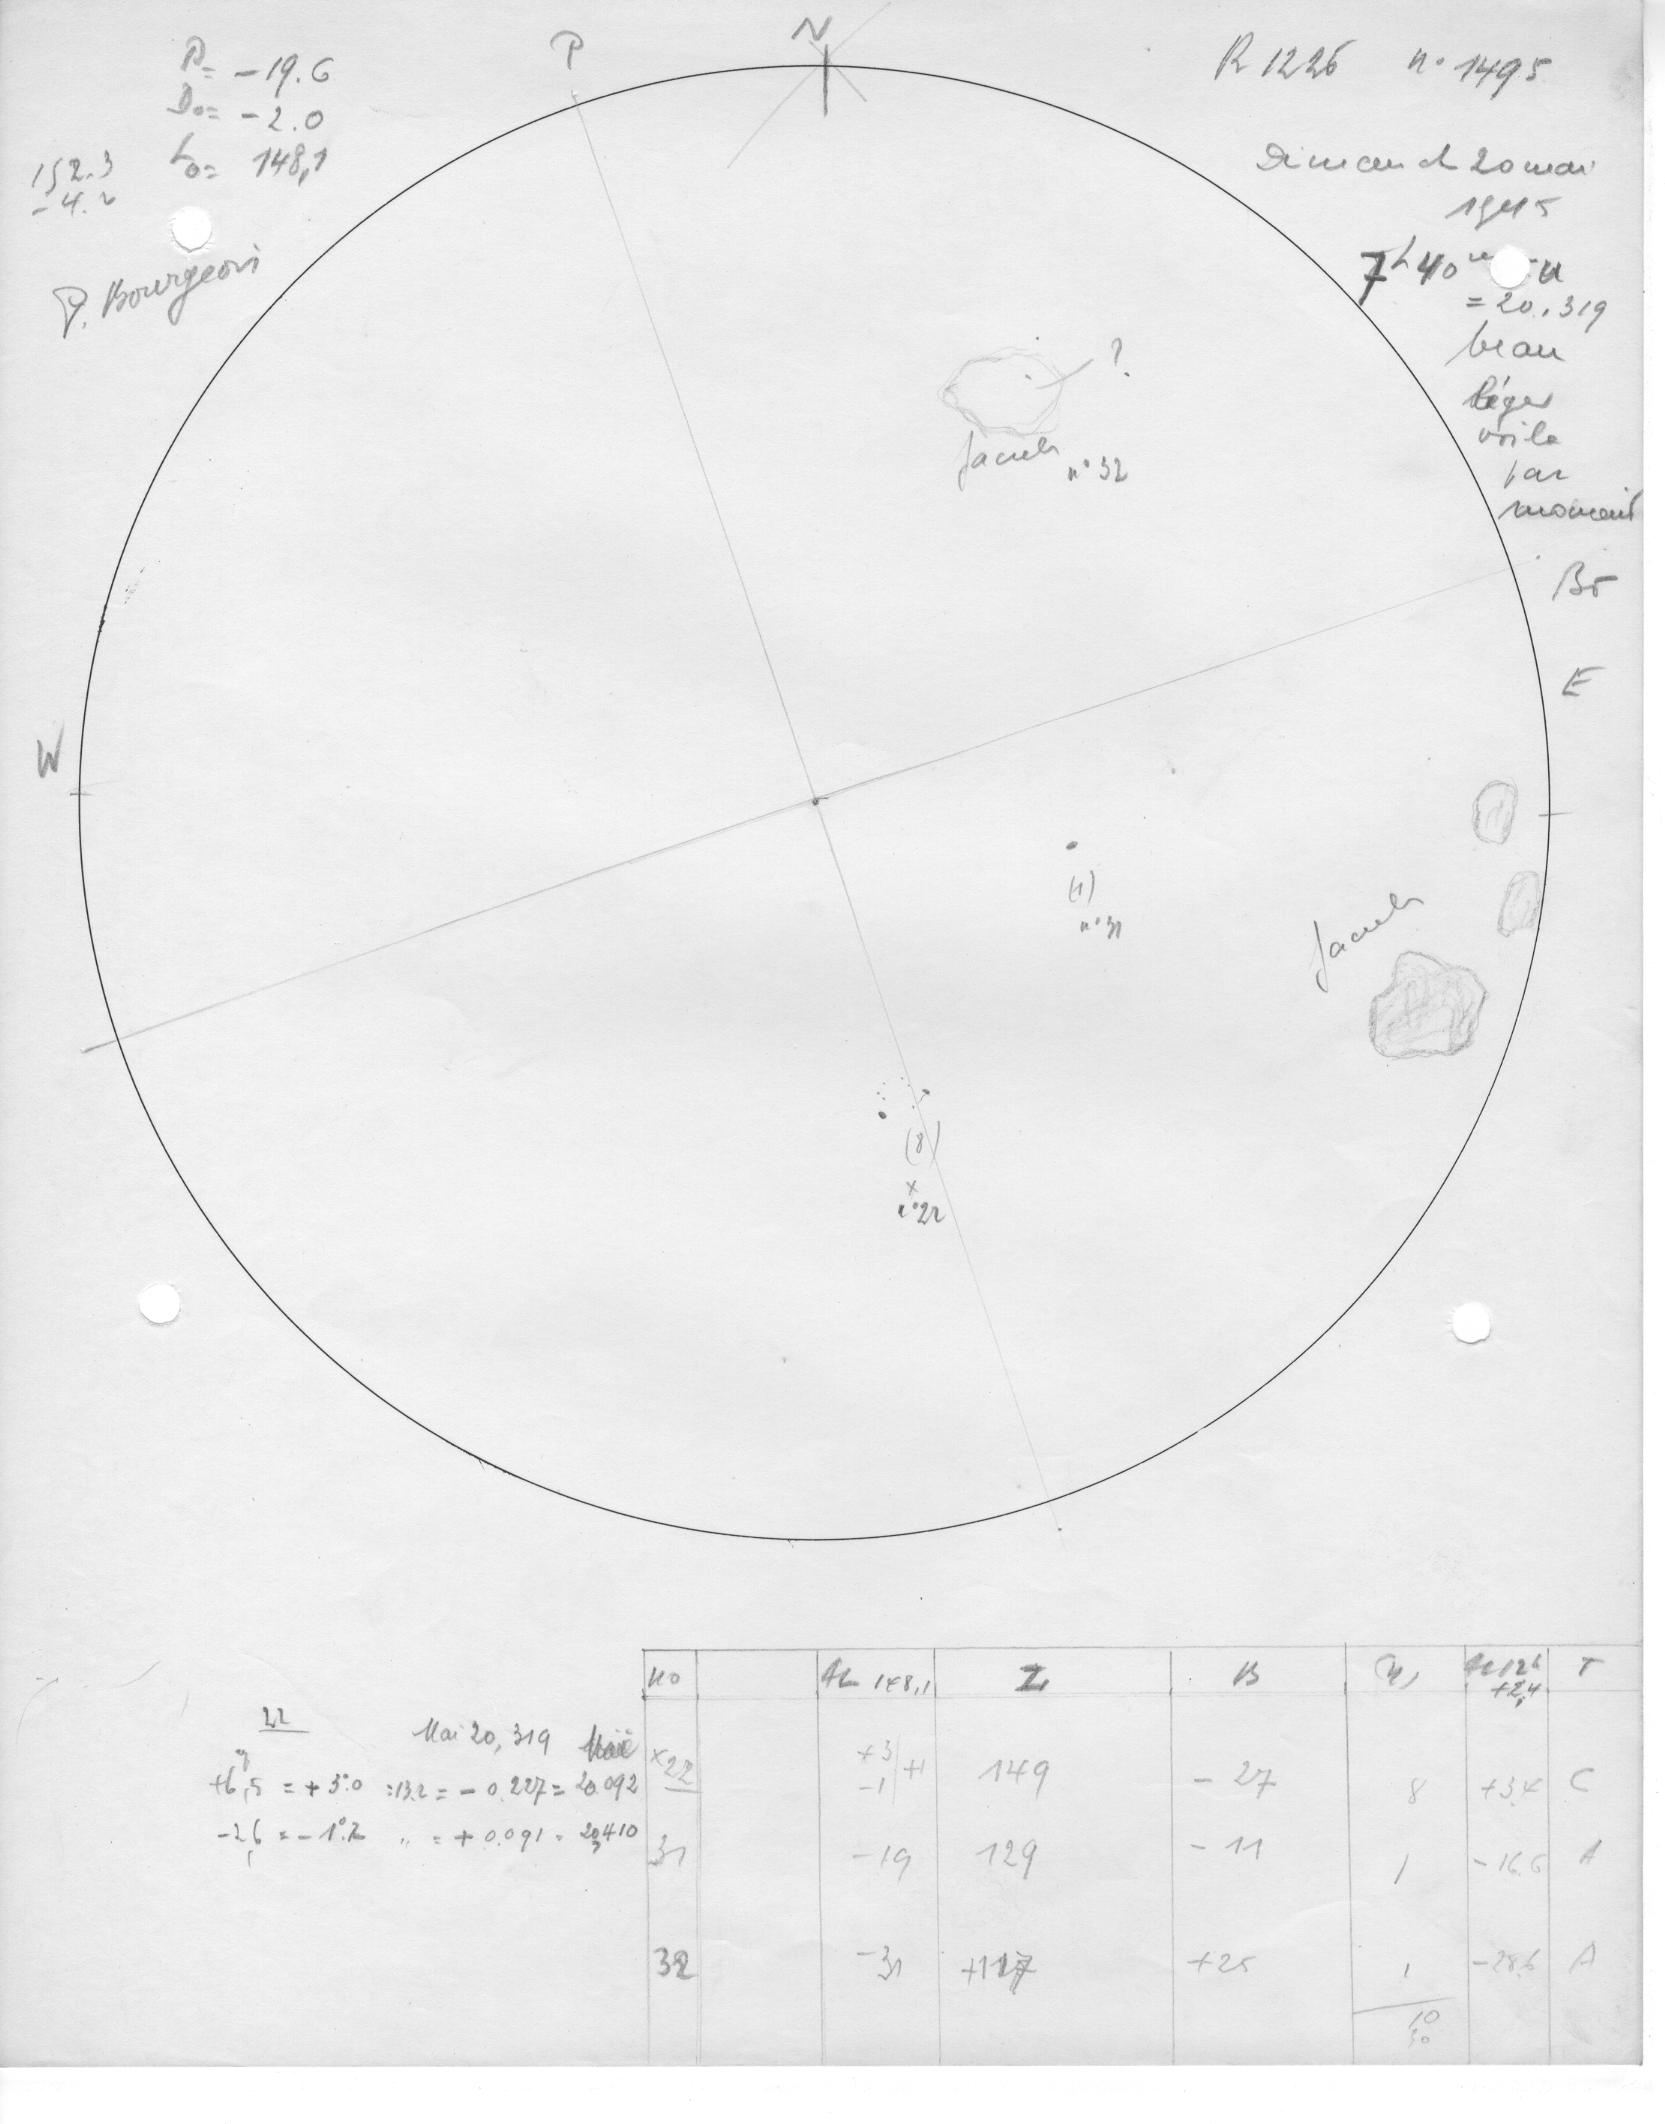 P= -19.6
D₀= -2.0
L₀= 148,1
152.3
-4.2
P. Bourgeois
P
N
R 1226 n° 1495
Dimanch 20 mai
1945
7h 40m
= 20.319
beau
léger
voile
par
moment
B5
E
W
?
facule n° 32
(1)
n° 31
facule
(8)
x
n° 22
No AL 148,1 L B +2,4 T
x22 +3 -1 +1 149 - 27 8 +3,4 C
31 -19 129 - 11 1 -16.6 A
32 -31 +117 +25 1 -28.6 A
10
30
22
Mai 20,319
+6,5 = +3°.0 :13.2 = - 0.227 = 20.092
-2,6 = -1°.2 " = + 0.091 = 20,410